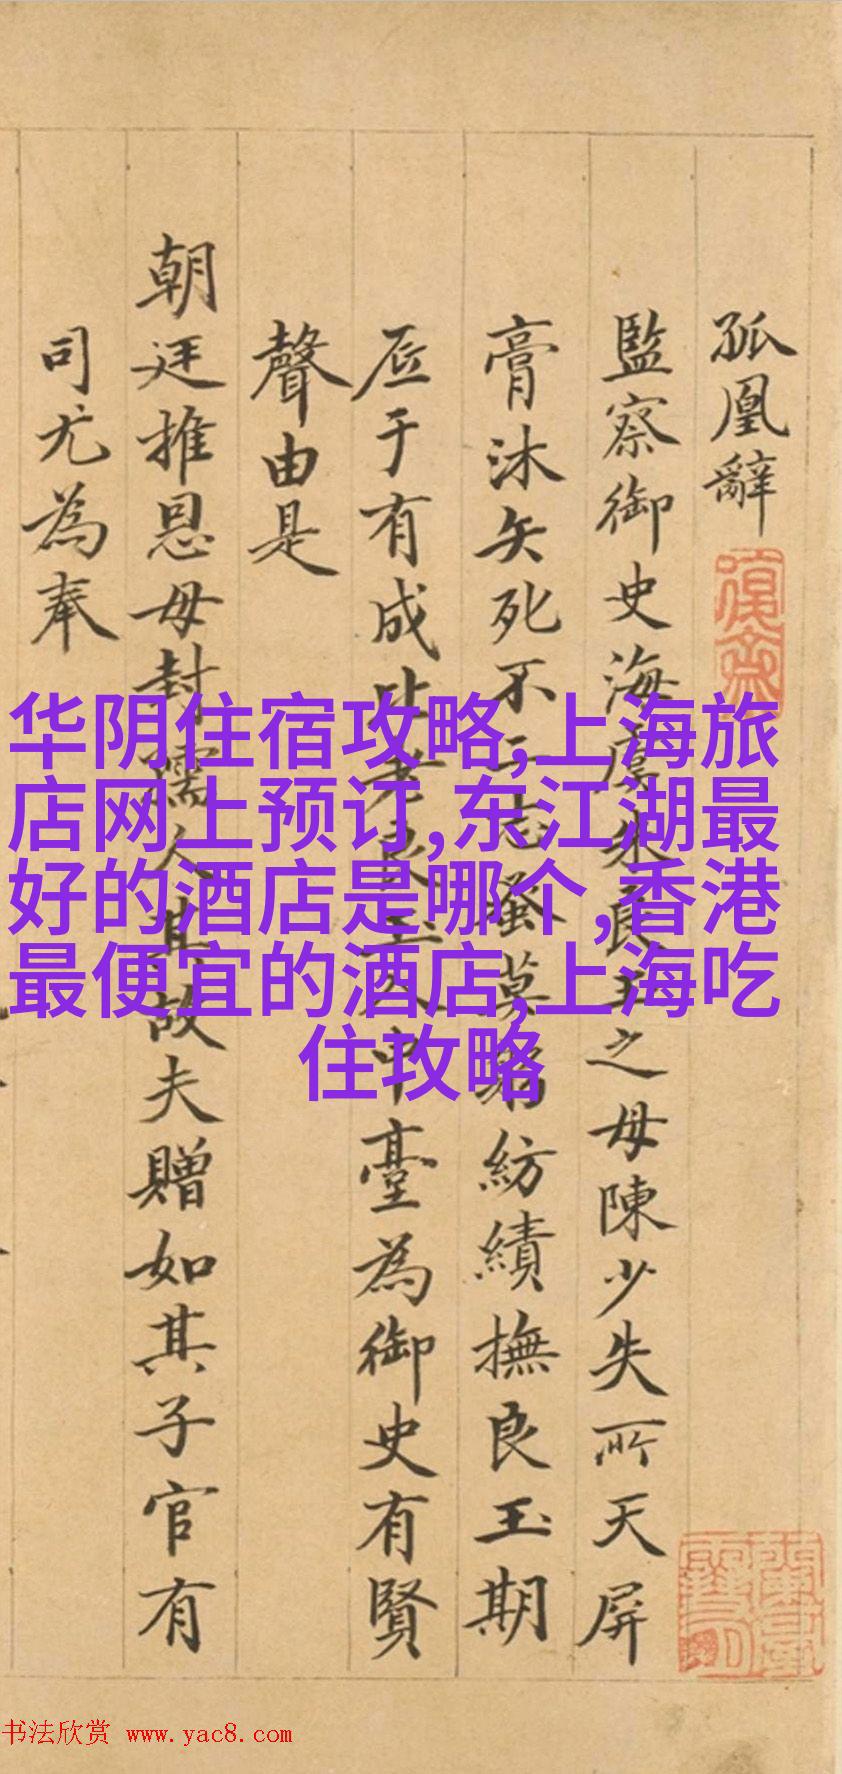 孤凰辭
監察御史海虞朱良玉之母陳少失所天屏
膏沐矢死不二志蚤莫紡績撫良玉期
底于有成良玉中臺為御史有賢
聲由是
朝廷推恩母封孺人其故夫贈如其子官有
司尤為奉
华阴住宿攻略,上海旅
店网上预订,东江湖最
好的酒店是哪个,香港
最便宜的酒店,上海吃
住攻略
书法欣赏 www.yac8.com